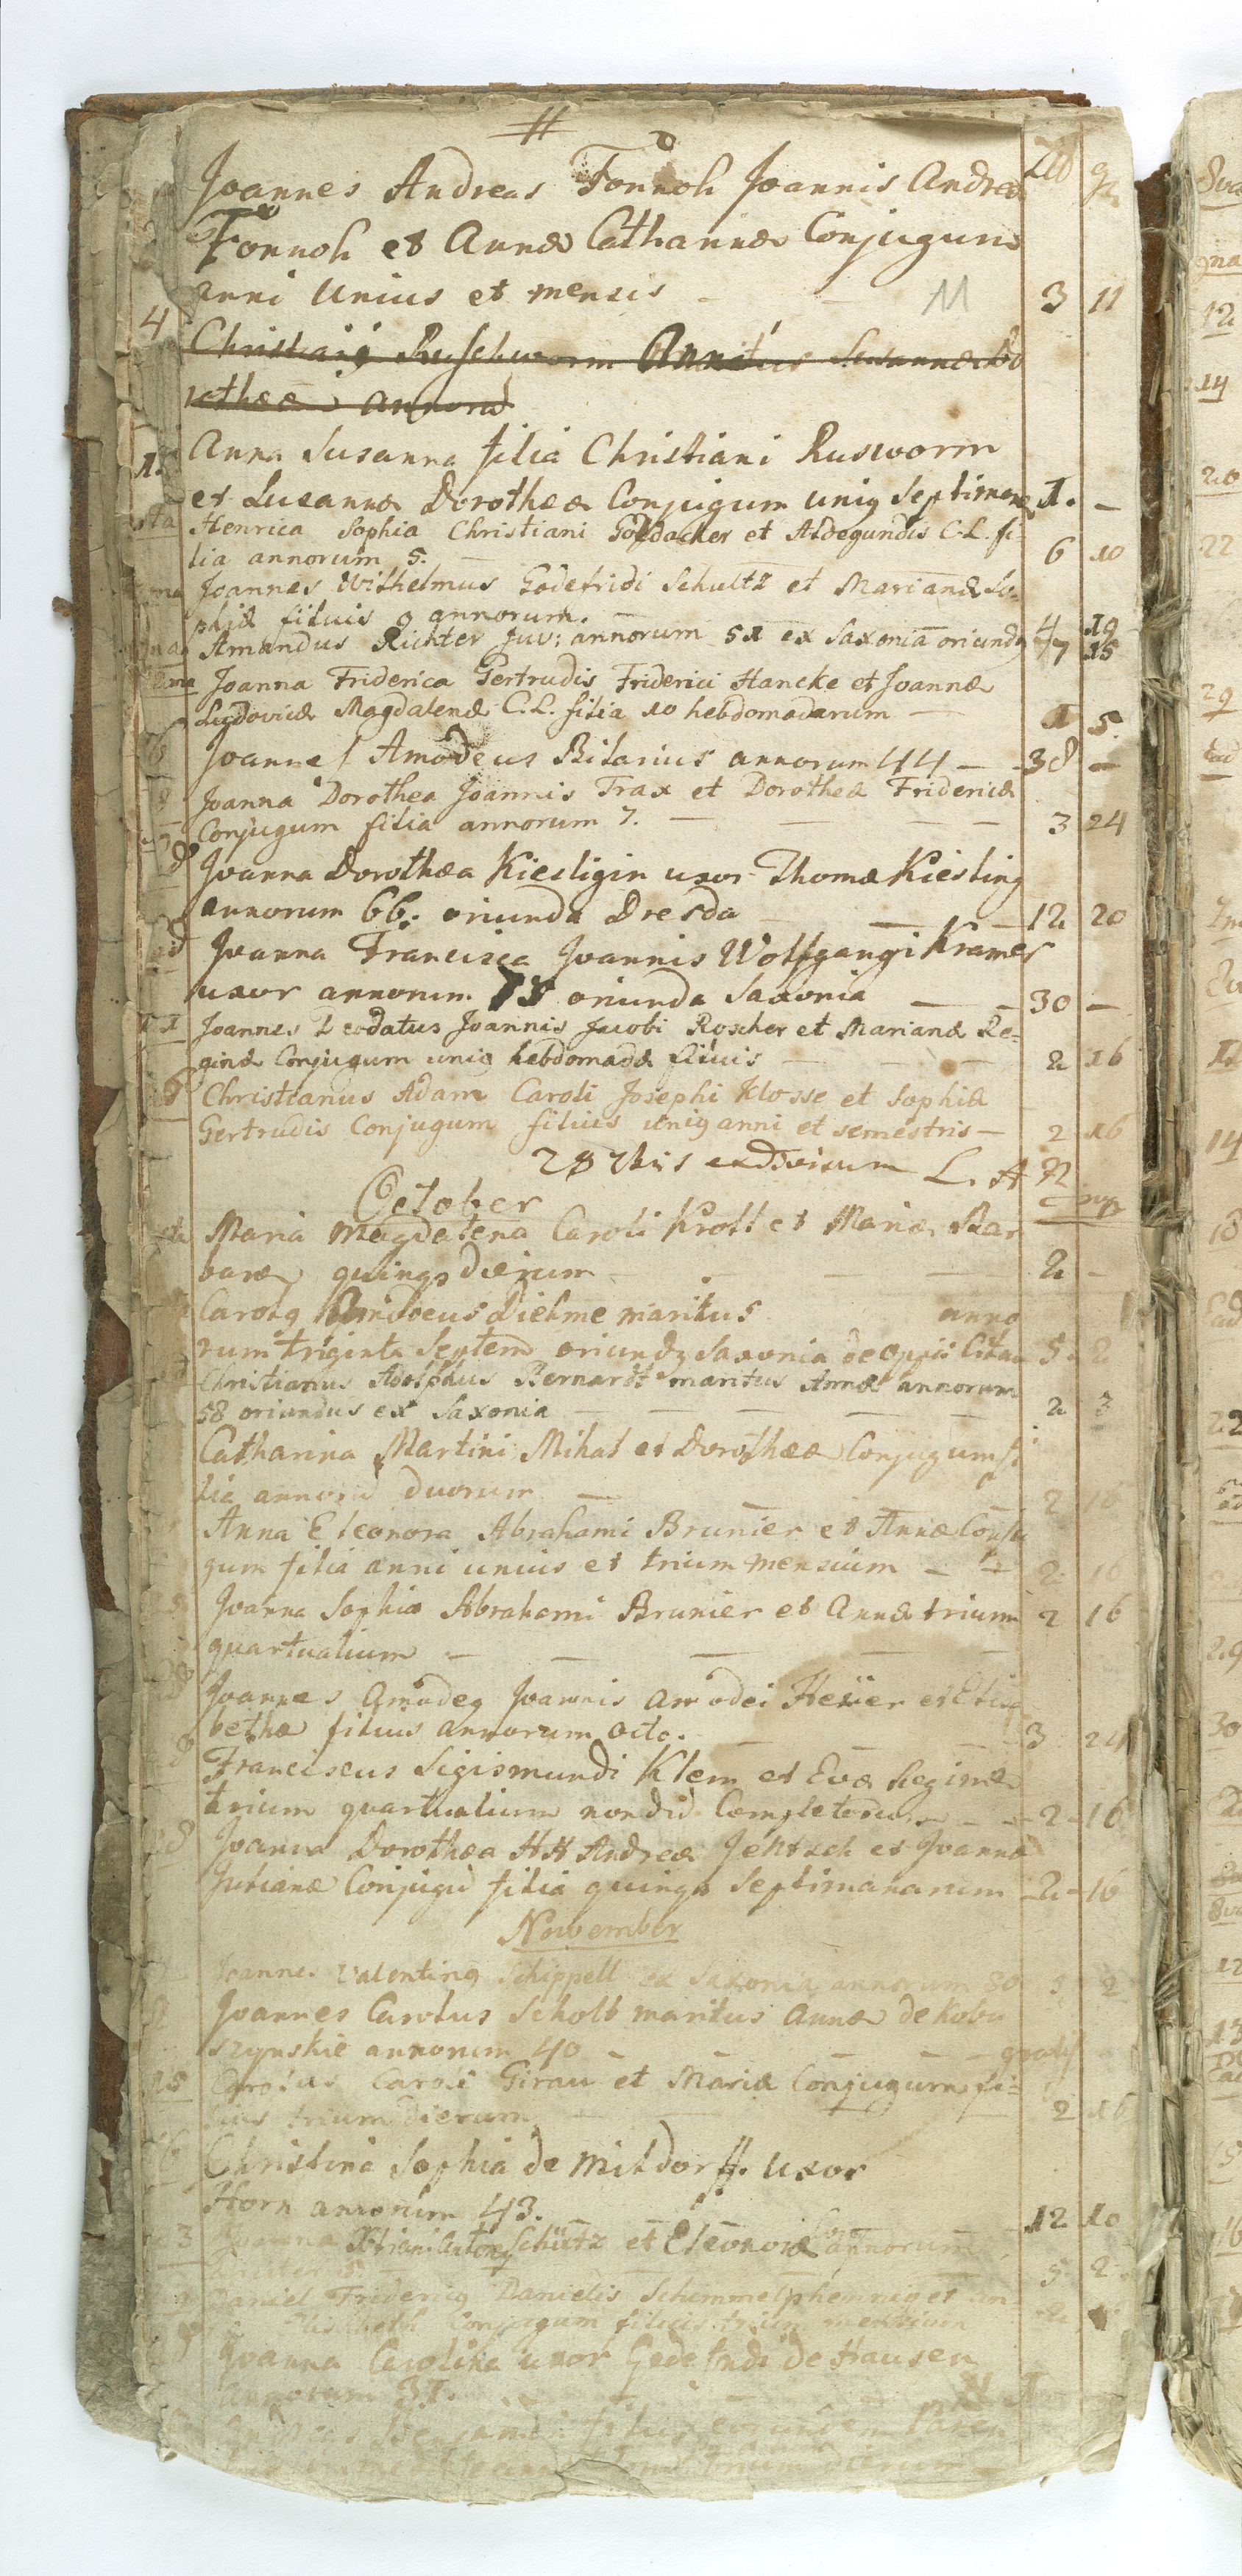 Joannes Andreas Fonnoh Joannis Andreæ
Fonnoh et Annæ Catharinæ Conjugum
anni Unius et mensis - 11 3 11
4
Christiani Ruschworm Annitus Susannæ Do
rotheæ annorum
1. Anna Susanna filia Christiani Rusworm
et Susannæ Dorotheæ Conjugum unig septimanæ 1. -
Henrica Sophia Christiani Goldacker et Aldegundis C.L. fi-
lia annorum 5. 6 10
Joannes Wilhelmus Godefridi Schultz et Marianæ So-
phiæ filius 9 annorum. 4 19
Amandus Richter Juv: annorum 51 ex Saxonia oriundg 7 15
Joanna Friderica Gertrudis Friderici Hancke et Joannæ
Ludovicæ Magdalenæ C.L. filia 10 hebdomadarum - 1 5
Joannes Amodeus Bilarius annorum 44 - 38 -
Joanna Dorothea Joannis Trax et Dorotheæ Fridericæ
Conjugum filia annorum 7. - - - 3 24
Joanna Dorothea Kiesligin uxor Thomæ Kiesling
annorum 66. oriunda Dresda - - 12 20
Joanna Francisca Joannis Wolfgangi Kramer
uxor annorum 78 oriunda Saxonia - - 30 -
Joannes Deodatus Joannis Jacobi Roscher et Marianæ Re-
ginæ Conjugum unig hebdomadæ filius - - 2 16
Christianus Adam Caroli Josephi Klosse et Sophiæ
Gertrudis Conjugum filius unig anni et semestris - 2 16
28 7bris exdivisum L. A 72
October
Maria Magdalena Caroli Kroll et Mariæ Bar
baræ quinqs dierum - - 2 -
Carolg Amodeus Dielme maritus anno
rum triginta Septem oriundg Saxonia de 5 2
Christianus Adolphus Bernardt maritus Annæ annorum
58 oriundus ex Saxonia - - - 2 3
Catharina Martini Mihal et Dorotheæ Conjugum fi
lia annorū duorum - 2 16
Anna Eleonora Abrahami Brunier et Annæ Conju
gum filia anni unius et trium mensium - - 2 10
Joanna Sophia Abrahami Brunier et Annæ trium 2 16
quartualium - - - -
Joannes Amodeg Joannis Amodei Hexier et Elisa
bethæ filius annorum octo. - - 3 24
Franciscus Sigismundi Klem et Evæ Reginæ
trium quartualium nondū Completorum - - 2 - 16
Joanna Dorothea HH Andreæ Jentsch et Joannæ
Julianæ Conjugū filia quinqs Septimanarum - 2 - 16
November
Joannes Valenting Schippell ex Saxonia annorum 80 5 2
Joannes Carolus Scholt maritus Annæ de Kobu
szynskie annorum 40 - - - gratis
15 Carolus Caroli Girau et Mariæ Conjugum fi-
lius trium dierum - 2 16
Christina Sophia de Mildorff. uxor
Horn annorum 43. 12 10
Joanna Schütz et Eleonoræ annorum
5 2
Daniel Friderig Danielis Schimmelphennig et An-
Elisabeth Conjugum filius trium mensium
Joanna Carolina uxor Godefridi de Hausen
annorum 31.
filius